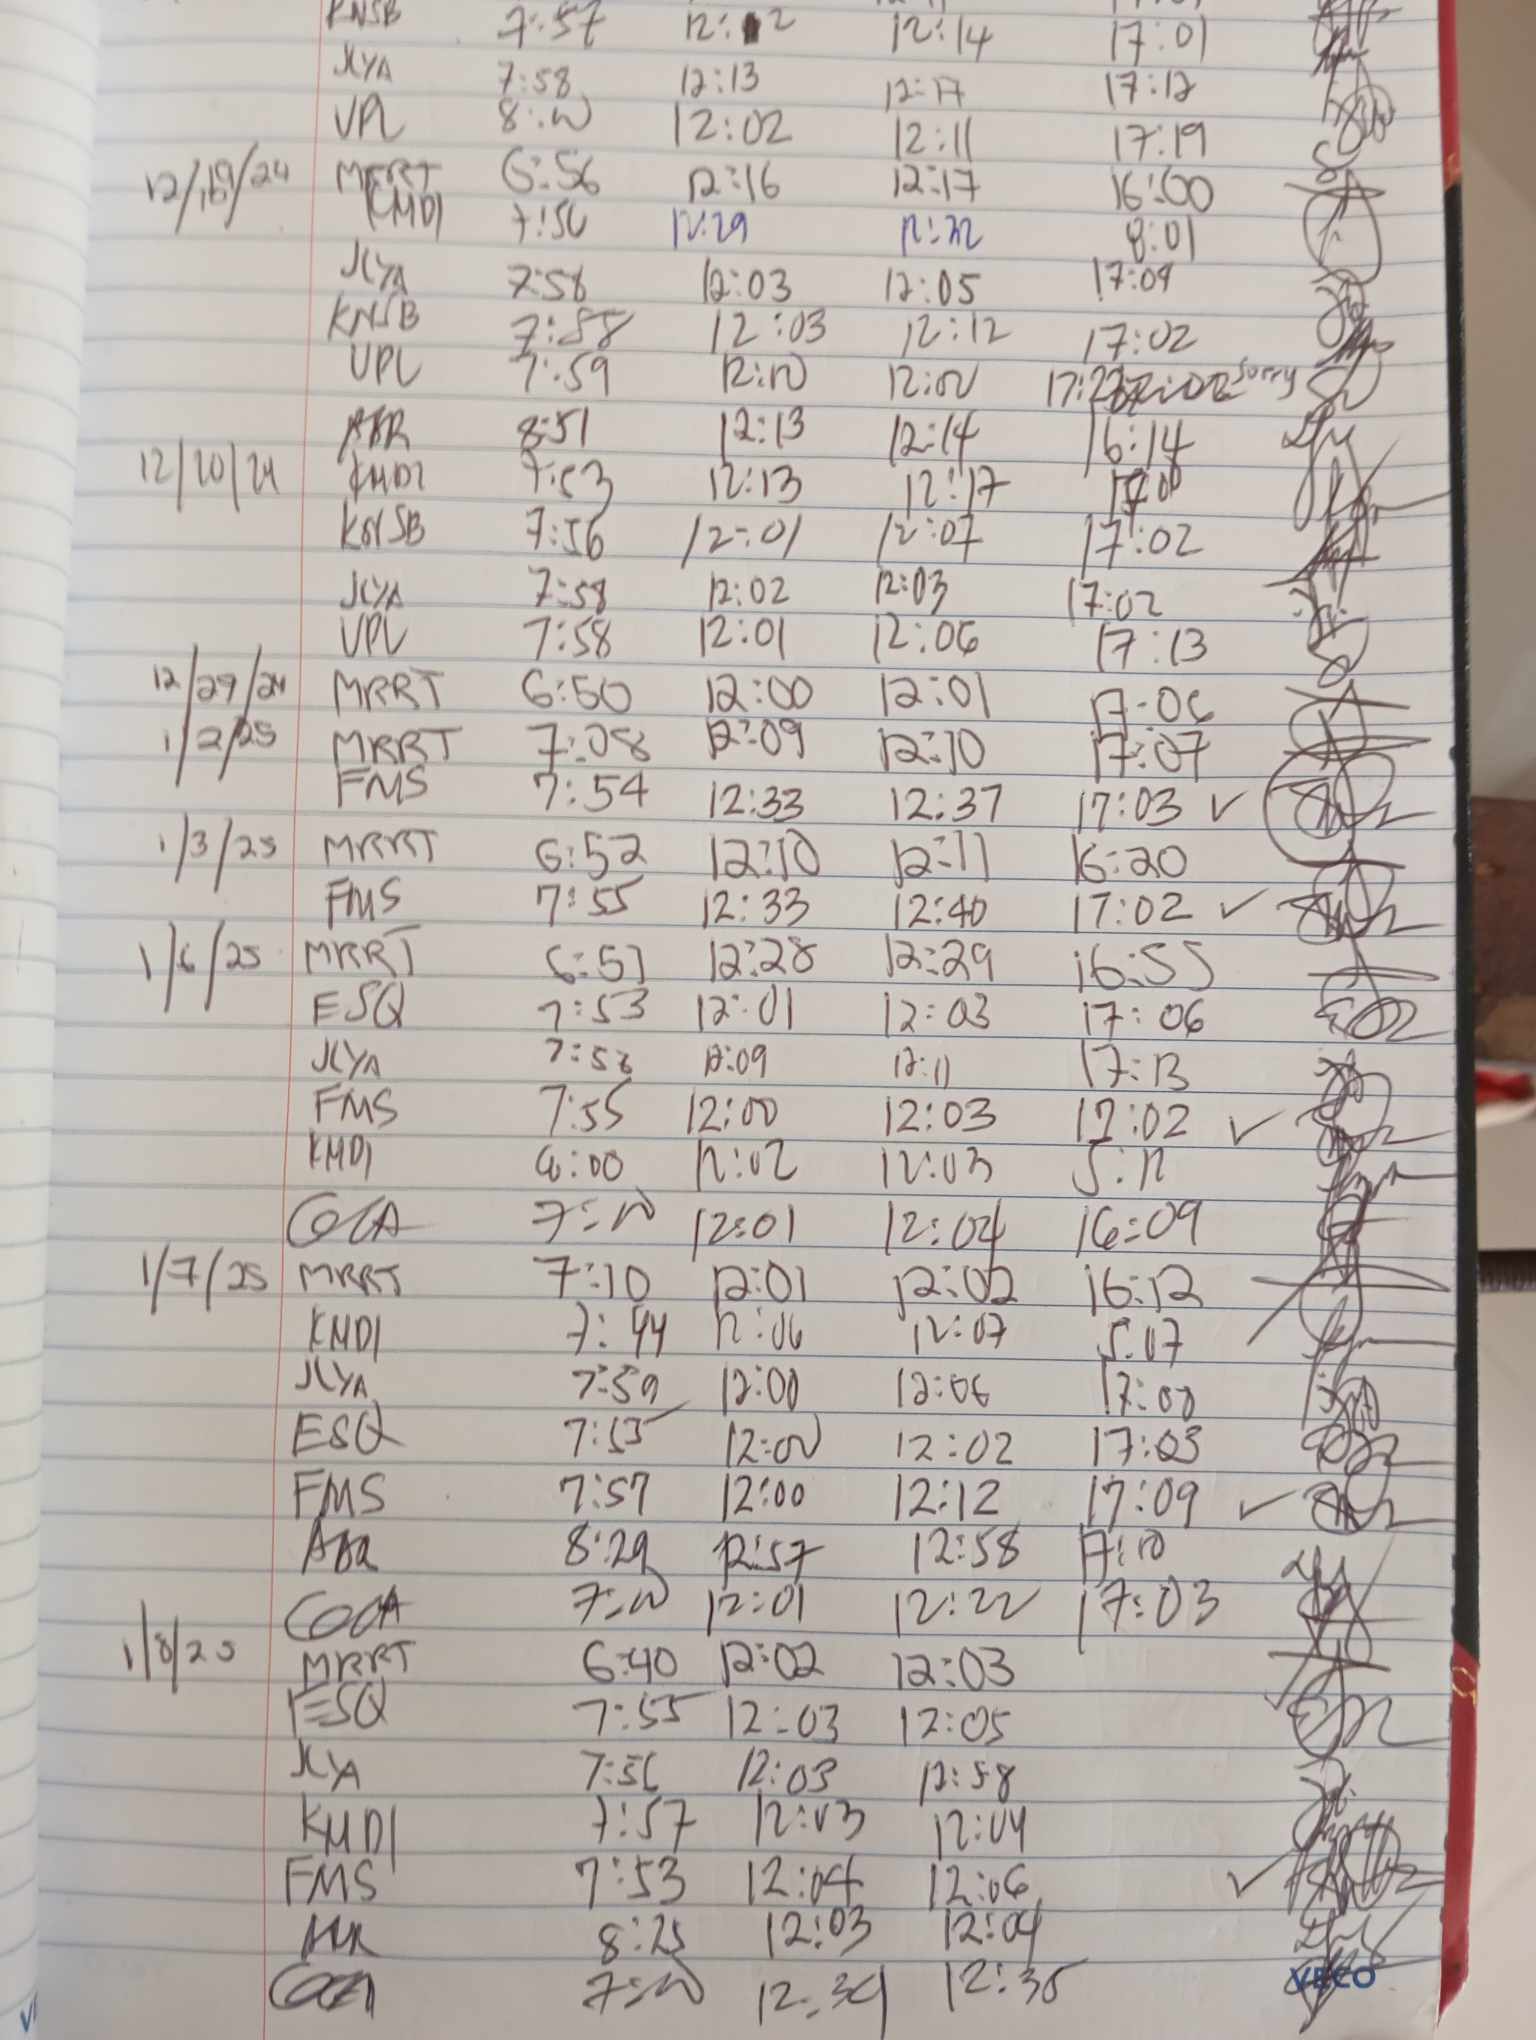 KNSB 7:57 12:12 12:14 17:01
JLYA 7:58 12:13 12:17 17:12
VPL 8:00 12:02 12:11 17:19
12/19/24 MRRT 6:56 12:16 12:17 16:00
KMDI 7:56 12:29 12:32 8:01
JLYA 7:58 12:03 12:05 17:09
KNSB 7:58 12:03 12:12 17:02
VPL 7:59 12:00 12:00 17:23 sorry
ABR 8:51 12:13 12:14 16:14
12/20/24 KMDI 7:53 12:13 12:17
KNSB 7:56 12:01 12:07 17:02
JLYA 7:58 12:02 12:03 17:02
VPL 7:58 12:01 12:06 17:13
12/29/24 MRRT 6:50 12:00 12:01 17:06
1/2/25 MRRT 7:08 12:09 12:10 17:07
FMS 7:54 12:33 12:37 17:03 ✓
1/3/25 MRRT 6:52 12:10 12:11 16:20
FMS 7:55 12:33 12:40 17:02 ✓
1/6/25 MRRT 6:51 12:28 12:29 16:55
ESQ 7:53 12:01 12:03 17:06
JLYA 7:53 12:09 12:11 17:13
FMS 7:55 12:00 12:03 17:02 ✓
KMDI 8:00 12:02 12:03 5:12
COCA 7:00 12:01 12:04 16:09
1/7/25 MRRT 7:10 12:01 12:02 16:12
KMDI 7:44 12:06 12:07 5:07
JLYA 7:59 12:00 12:06 17:00
ESQ 7:55 12:00 12:02 17:03
FMS 7:57 12:00 12:12 17:09 ✓
ABR 8:29 12:57 12:58 17:10
COCA 7:00 12:01 12:22 17:03
1/8/25 MRRT 6:40 12:02 12:03
ESQ 7:55 12:03 12:05
JLYA 7:56 12:03 12:58
KMDI 7:57 12:03 12:04
FMS 7:53 12:04 12:06 ✓
ABR 8:25 12:03 12:04
COCA 7:00 12:34 12:35
VECO